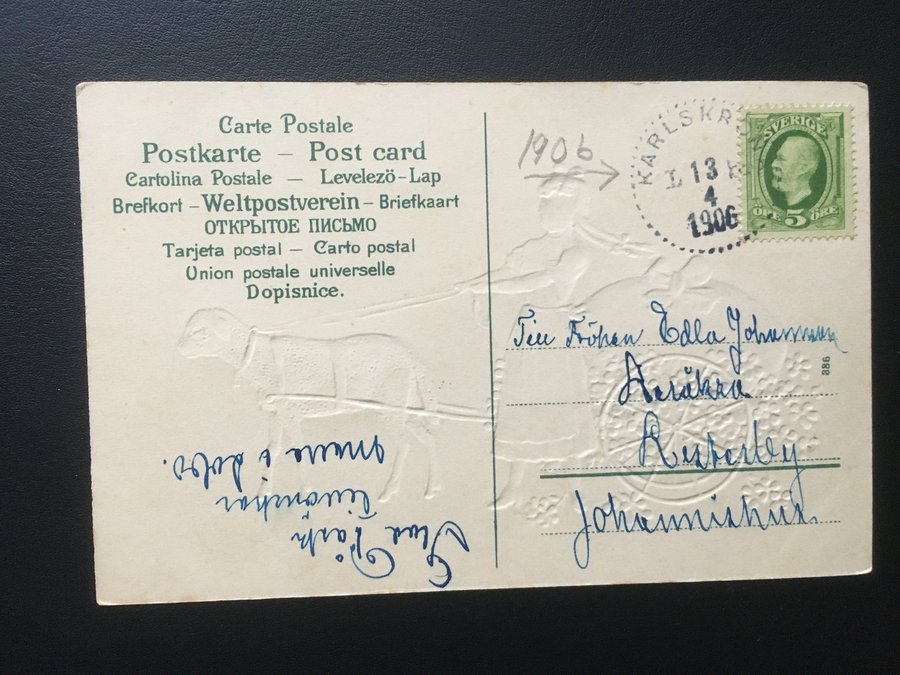 Carte Postale
Postkarte – Post card
Cartolina Postale — Levelező-Lap
Brefkort – Weltpostverein – Briefkaart
ОТКРЫТОЕ ПИСЬМО
Tarjeta postal — Carto postal
Union postale universelle
Dopisnice.
1906
KARLSKRONA
13
4
1906
SVERIGE
ÖRE 5 ÖRE
Till Fröken Edla Johannsson
Johannishus.
886
Glad Påsk